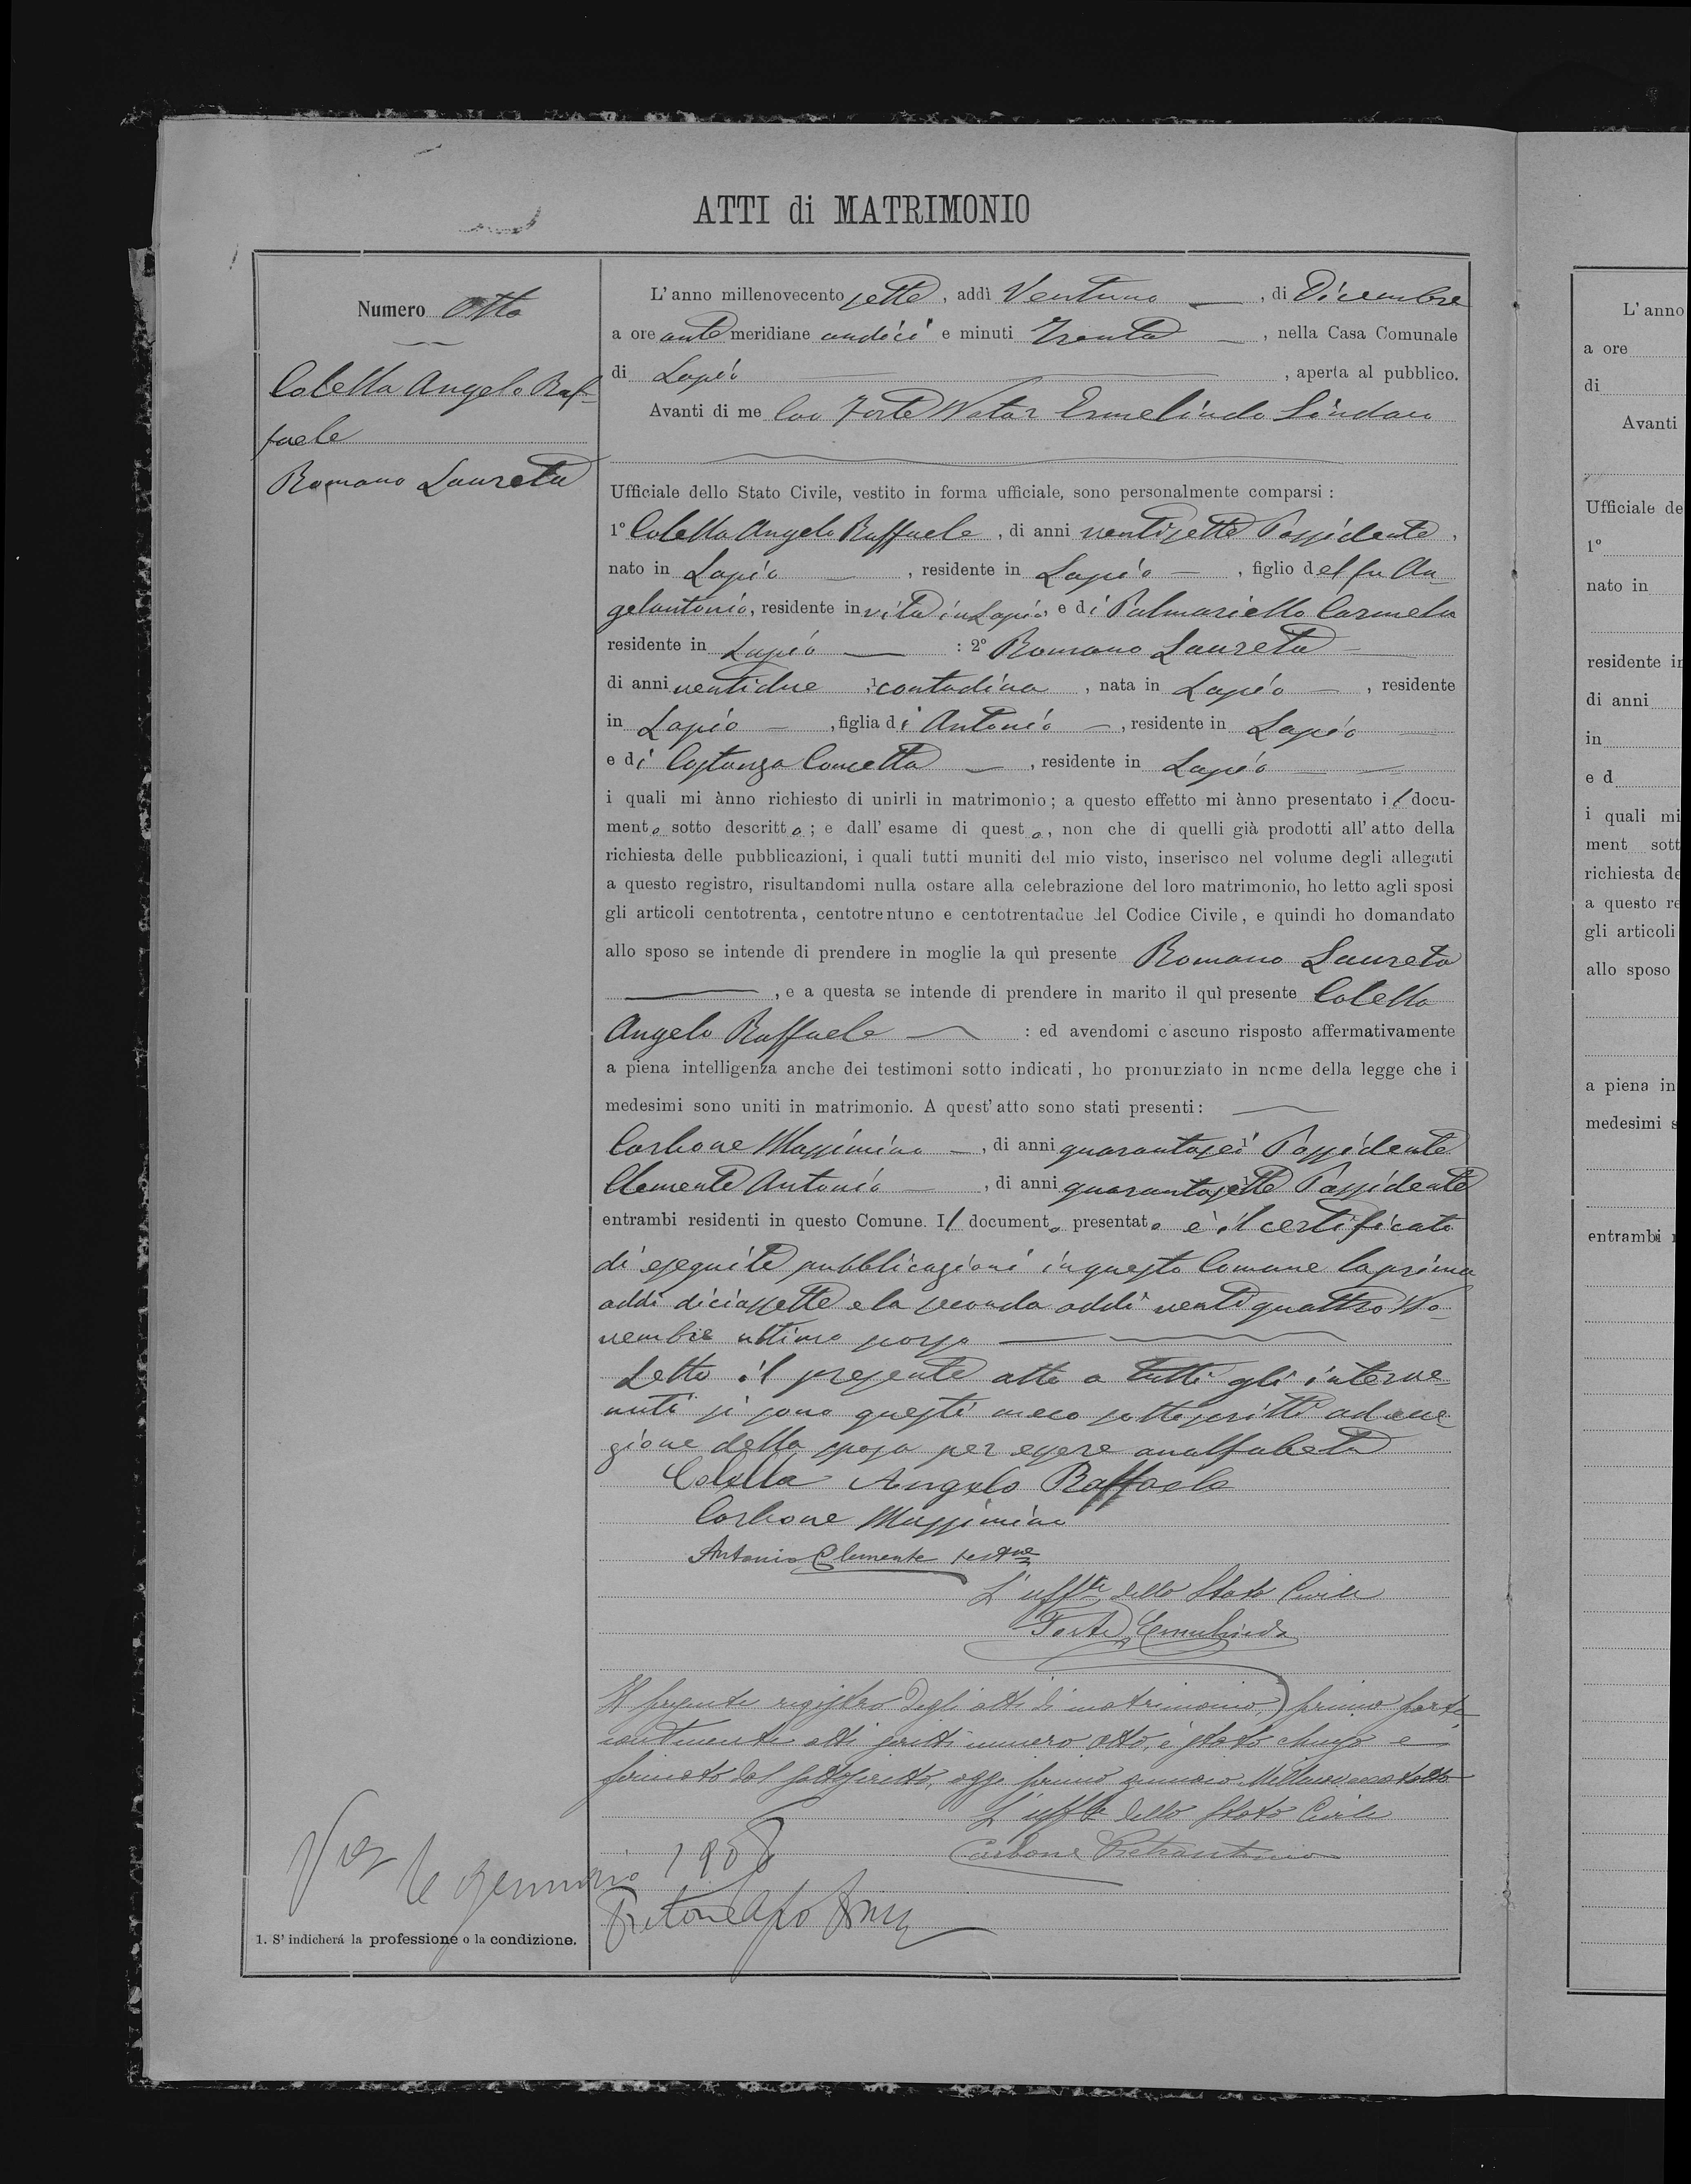 ATTI di MATRIMONIO
Numero Otto
Colella Angelo Raf-
faele
Romano Laureta
L'anno millenovecento sette, addì Ventuno, di Dicembre
a ore antemeridiane undici e minuti Trenta, nella Casa Comunale
di Lapio, aperta al pubblico.
Avanti di me Cav Forte Notar Ermelindo Sindaco
Ufficiale dello Stato Civile, vestito in forma ufficiale, sono personalmente comparsi :
1° Colella Angelo Raffaele, di anni ventisette Possidente,
nato in Lapio, residente in Lapio, figlio del fu An-
gelantonio, residente in vita in Lapio, e di Palmariello Carmela
residente in Lapio : 2° Romano Laureta
di anni ventidue ,1 contadina, nata in Lapio, residente
in Lapio, figlia di Antonio, residente in Lapio
e di Costanza Concetta, residente in Lapio
i quali mi ànno richiesto di unirli in matrimonio; a questo effetto mi ànno presentato il docu-
mento sotto descritto; e dall'esame di questo, non che di quelli già prodotti all'atto della
richiesta delle pubblicazioni, i quali tutti muniti del mio visto, inserisco nel volume degli allegati
a questo registro, risultandomi nulla ostare alla celebrazione del loro matrimonio, ho letto agli sposi
gli articoli centotrenta, centotrentuno e centotrentadue del Codice Civile, e quindi ho domandato
allo sposo se intende di prendere in moglie la quì presente Romano Laureta
, e a questa se intende di prendere in marito il quì presente Colella
Angelo Raffaele : ed avendomi ciascuno risposto affermativamente
a piena intelligenza anche dei testimoni sotto indicati, ho pronunziato in nome della legge che i
medesimi sono uniti in matrimonio. A quest'atto sono stati presenti:
Carbone Massimino, di anni quarantasei 1 Possidente
Clemente Antonio, di anni quarantasette 1 Possidente
entrambi residenti in questo Comune. Il documento presentato è il certificato
di eseguite pubblicazioni in questo Comune la prima
addi diciassette e la seconda addi venti quattro No-
vembre ultimo scorso
Letto il presente atto a tutti gli interve-
nuti si sono questi meco sottoscritti ad ecce-
zione della sposa per essere analfabeta
Colella Angelo Raffaele
Carbone Massimino
Antonio Clemente testne
L'uffle dello Stato Civile
Forte Ermelindo
Il presente registro degli atti di matrimonio, prima parte
contenente atti scritti numero otto, è stato chiuso e
firmato dal sottoscritto, oggi primo gennaio Millenovecentotto
L'uffle dello Stato Civile
Carbone Pietrantonio
gennaio 1908
1. S'indicherá la professione o la condizione.
L'anno
a ore
di
Avanti
Ufficiale de
1°
nato in
residente in
di anni
in
e d
i quali mi
ment sott
richiesta de
a questo re
gli articoli
allo sposo
a piena in
medesimi s
entrambi r